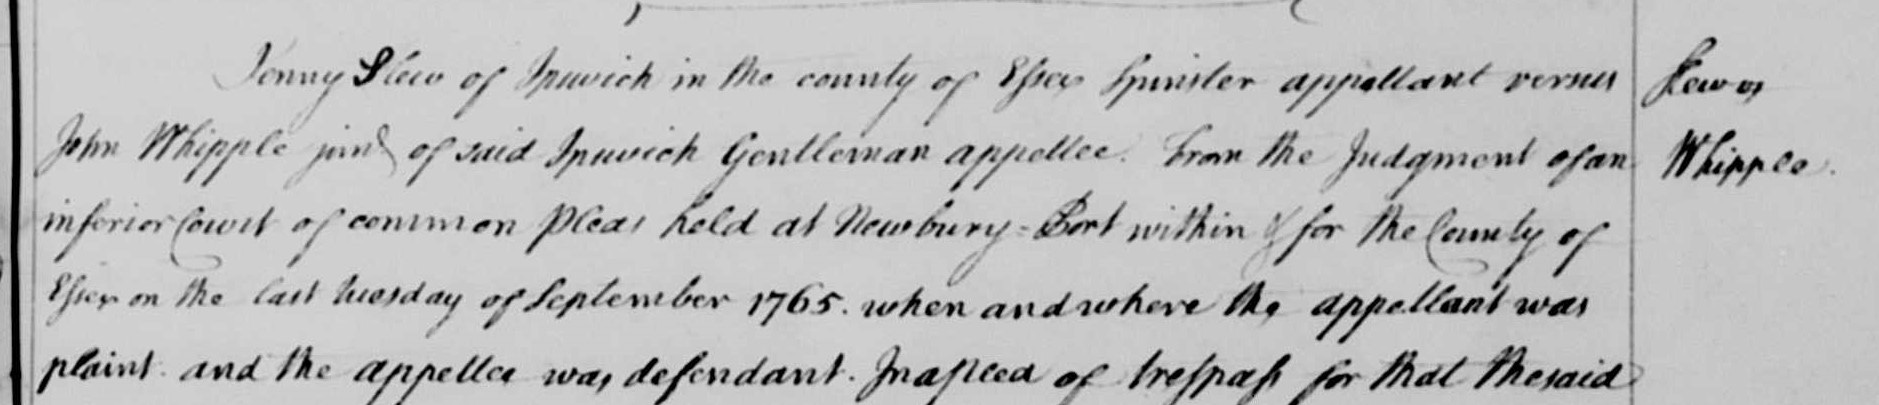 Jenny Slew of Ipswich in the county of Essex Spinster appellant versus
John Whipple junr of said Ipswich Gentleman appellee. From the Judgment of an
inferior Court of common Pleas held at Newbury-Port within & for the County of
Essex on the last Tuesday of September 1765. when and where the appellant was
plaint. and the appellee was defendant. In a plea of trespass for that the said
Slew vs
Whipple.